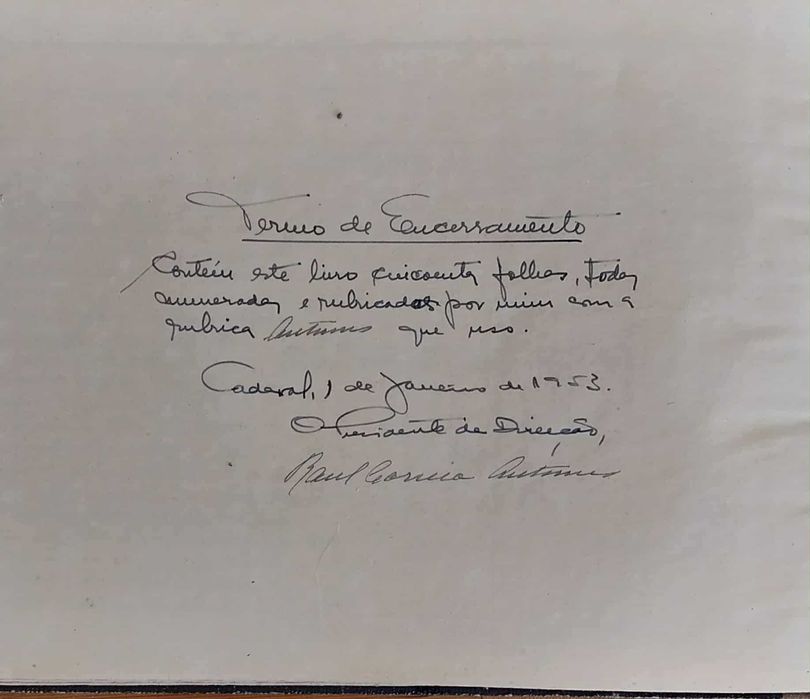 Termo de Encerramento
Contém este livro cincoenta folhas, todas
numeradas e rubricadas por mim com a
rubrica Antunes que uso.
Cadaval, 1 de Janeiro de 1953.
O Presidente da Direcção,
Raul Correia Antunes